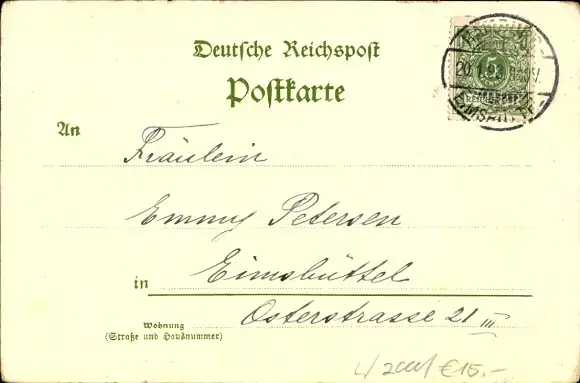 Deutsche Reichspost
Postkarte
An
Fräulein
Emmy Petersen
in Eimsbüttel
Osterstrasse 21 III
Wohnung
(Straße und Hausnummer)
5
€15,-